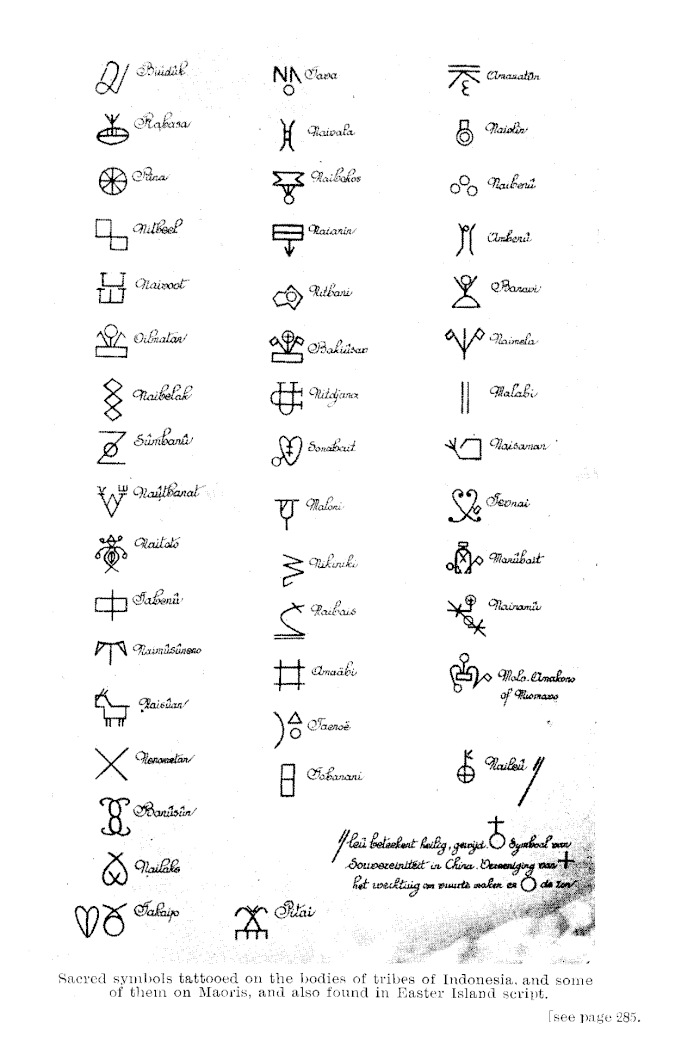 Buidûk
Rabasa
Pûna
Nitbeel
Naivoot
Oilmatan
Naibelak
Sûmbanû
Naûtbanat
Naitoto
Tabenû
Naimûsûneno
Naisûan
Nenometan
Banûsûn
Nailake
Takaip
Tava
Naivala
Naibakos
Naianin
Nitbani
Bakuûsav
Nitdjana
Sonabait
Maloni
Nikiniki
Naibais
Anaäbi
Taenoë
Tobanani
Pitai
Amanatûn
Naiolin
Naibenû
Ambenû
Banavi
Naimela
Malabi
Naisaman
Tevnai
Manûbait
Nainamû
Molo-Amakono
of Miomavo
Naileû
leû beteekent heilig, gewijd. Symbool van
Souvereiniteit in China. Vereeniging van
het werktuig om vuurte maken en de zon
Sacred symbols tattooed on the bodies of tribes of Indonesia, and some
of them on Maoris, and also found in Easter Island script.
[see page 285.